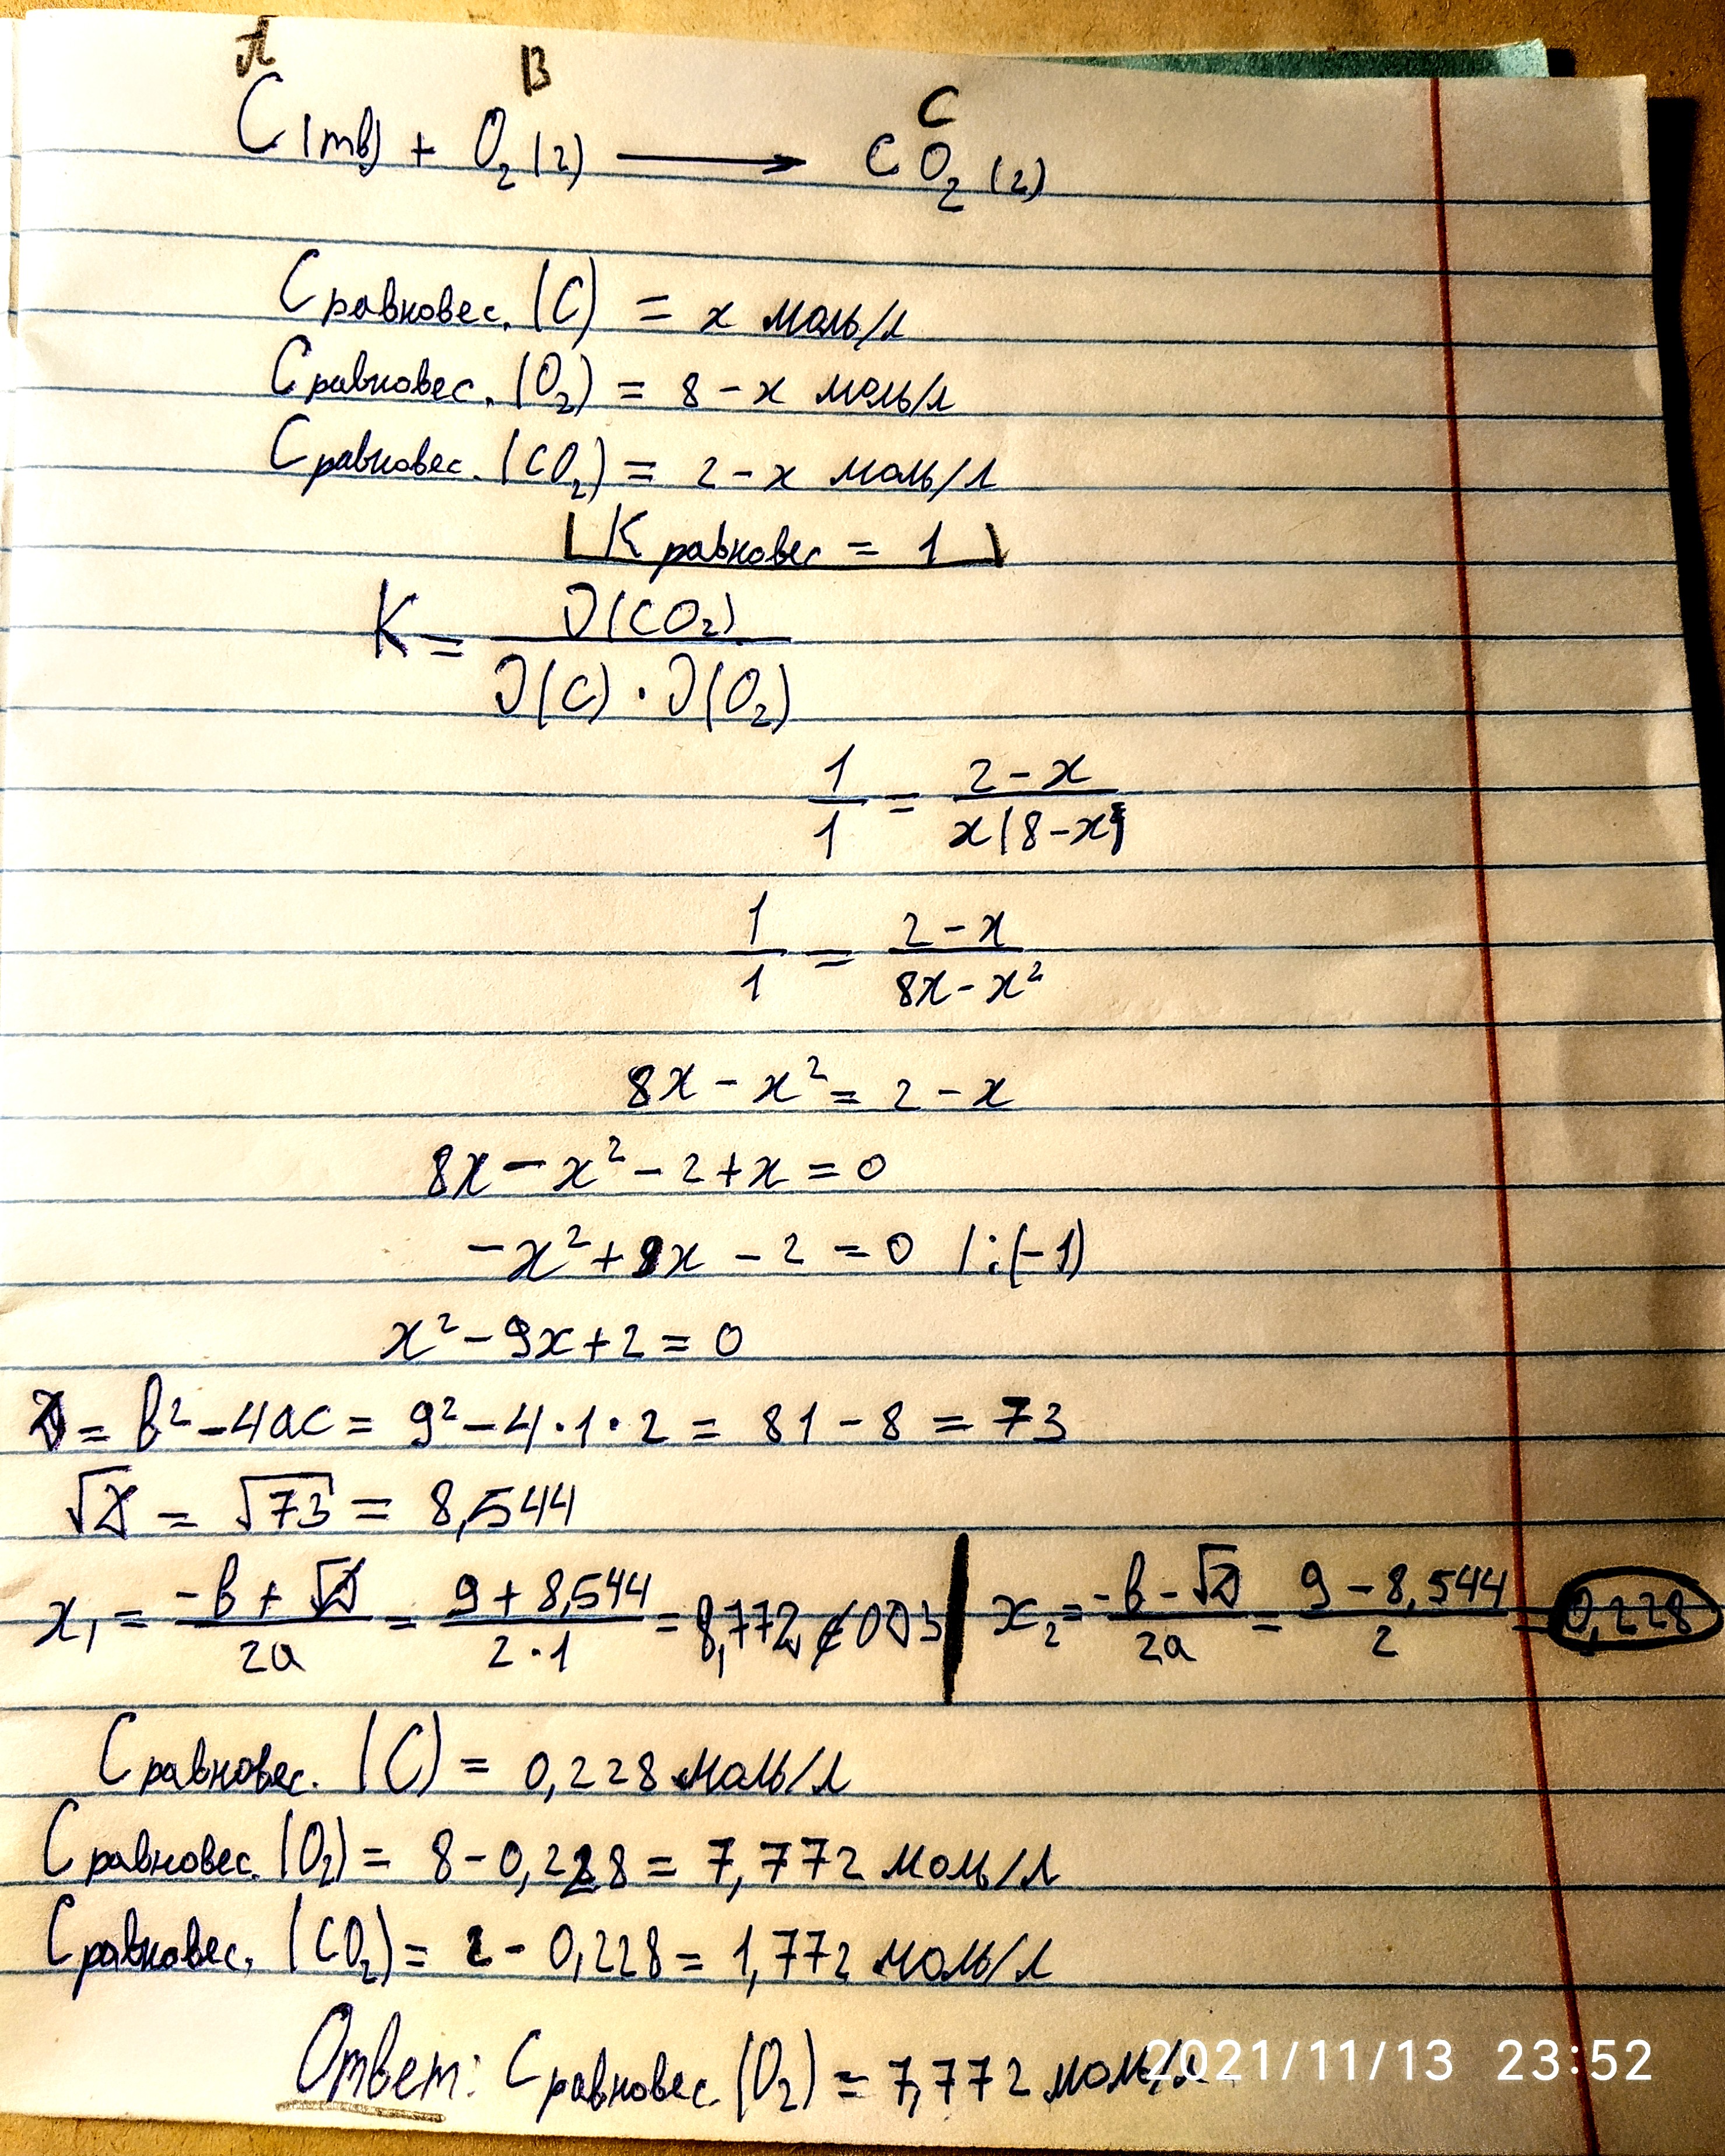 A B C
C(тв) + O₂(г) ⟶ CO₂(г)
Cравновес. (C) = x моль/л
Cравновес. (O₂) = 8 - x моль/л
Cравновес. (CO₂) = 2 - x моль/л
Kравновес = 1
K = J(CO₂) / J(C) · J(O₂)
1/1 = 2-x / x(8-x)
1/1 = 2-x / 8x-x²
8x - x² = 2 - x
8x - x² - 2 + x = 0
-x² + 9x - 2 = 0 /:(-1)
x² - 9x + 2 = 0
D = b² - 4ac = 9² - 4·1·2 = 81 - 8 = 73
√D = √73 = 8,544
x₁ = -b + √D / 2a = 9 + 8,544 / 2·1 = 8,772 ∉ ОДЗ | x₂ = -b - √D / 2a = 9 - 8,544 / 2 = 0,228
Cравновес. (C) = 0,228 моль/л
Cравновес. (O₂) = 8 - 0,228 = 7,772 моль/л
Cравновес. (CO₂) = 2 - 0,228 = 1,772 моль/л
Ответ: Cравновес. (O₂) = 7,772 моль/л
2021/11/13 23:52